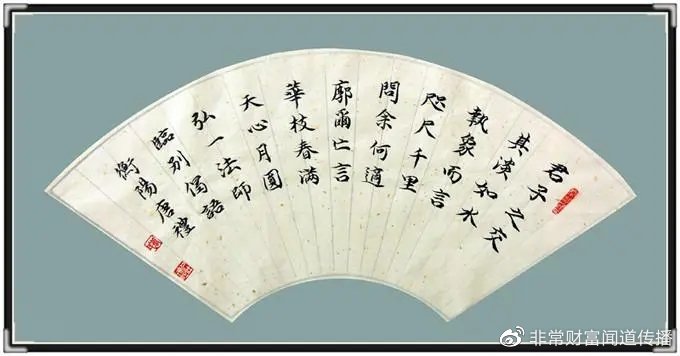 君子之交
其淡如水
執象而言
咫尺千里
問余何適
廓爾亡言
華枝春满
天心月圓
弘一法師
臨別偈語
衡陽唐禮
@非常财富闻道传播